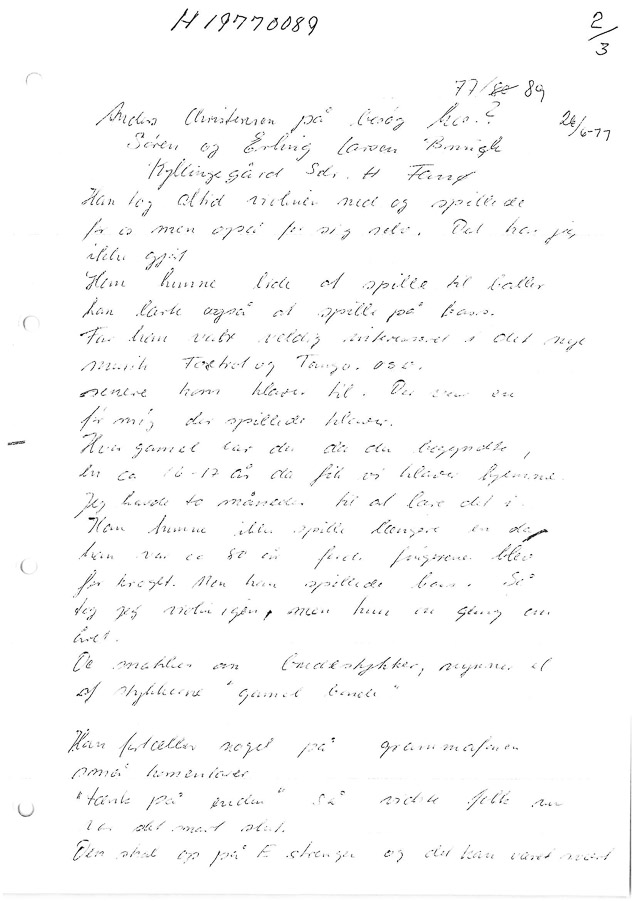 H19770089
2/3
77/89
Anders Christensen på besøg hos?
26/6-77
Søren og Erling Larsen Brinch
Kyllingegård Sdr. H Fanø
Han tog altid violinen ned og spillede
for os men også for sig selv. Det har jeg
ikke gjort
Han kunne lide at spille til baller
han lærte også at spille på bass.
Far han veldig interesseret i det nye
musik Foxtrot og Tango. o.s.v.
senere kom klaver til. Der var en
før mig der spillede klaver.
Hvor gamel var du da du begyndte,
En ca 16-17 år da fik vi klaver hjemme.
Jeg havde to måneder til at lære det i.
Han kunne ikke spille længere en da
han var ca 80 år fordi fingrene blev
for kroget. Men han spillede bass. Så
tog jeg violin igen, men kun en gang om
året.
De snakker om brudestykker, nynner et
af stykkerne "gamel brude"
Han fortæller noget på grammafonen
små komentarer
"tænk på enden" Så vidste folk nu
var det snart slut.
Den skal op på E strengen og det kan været